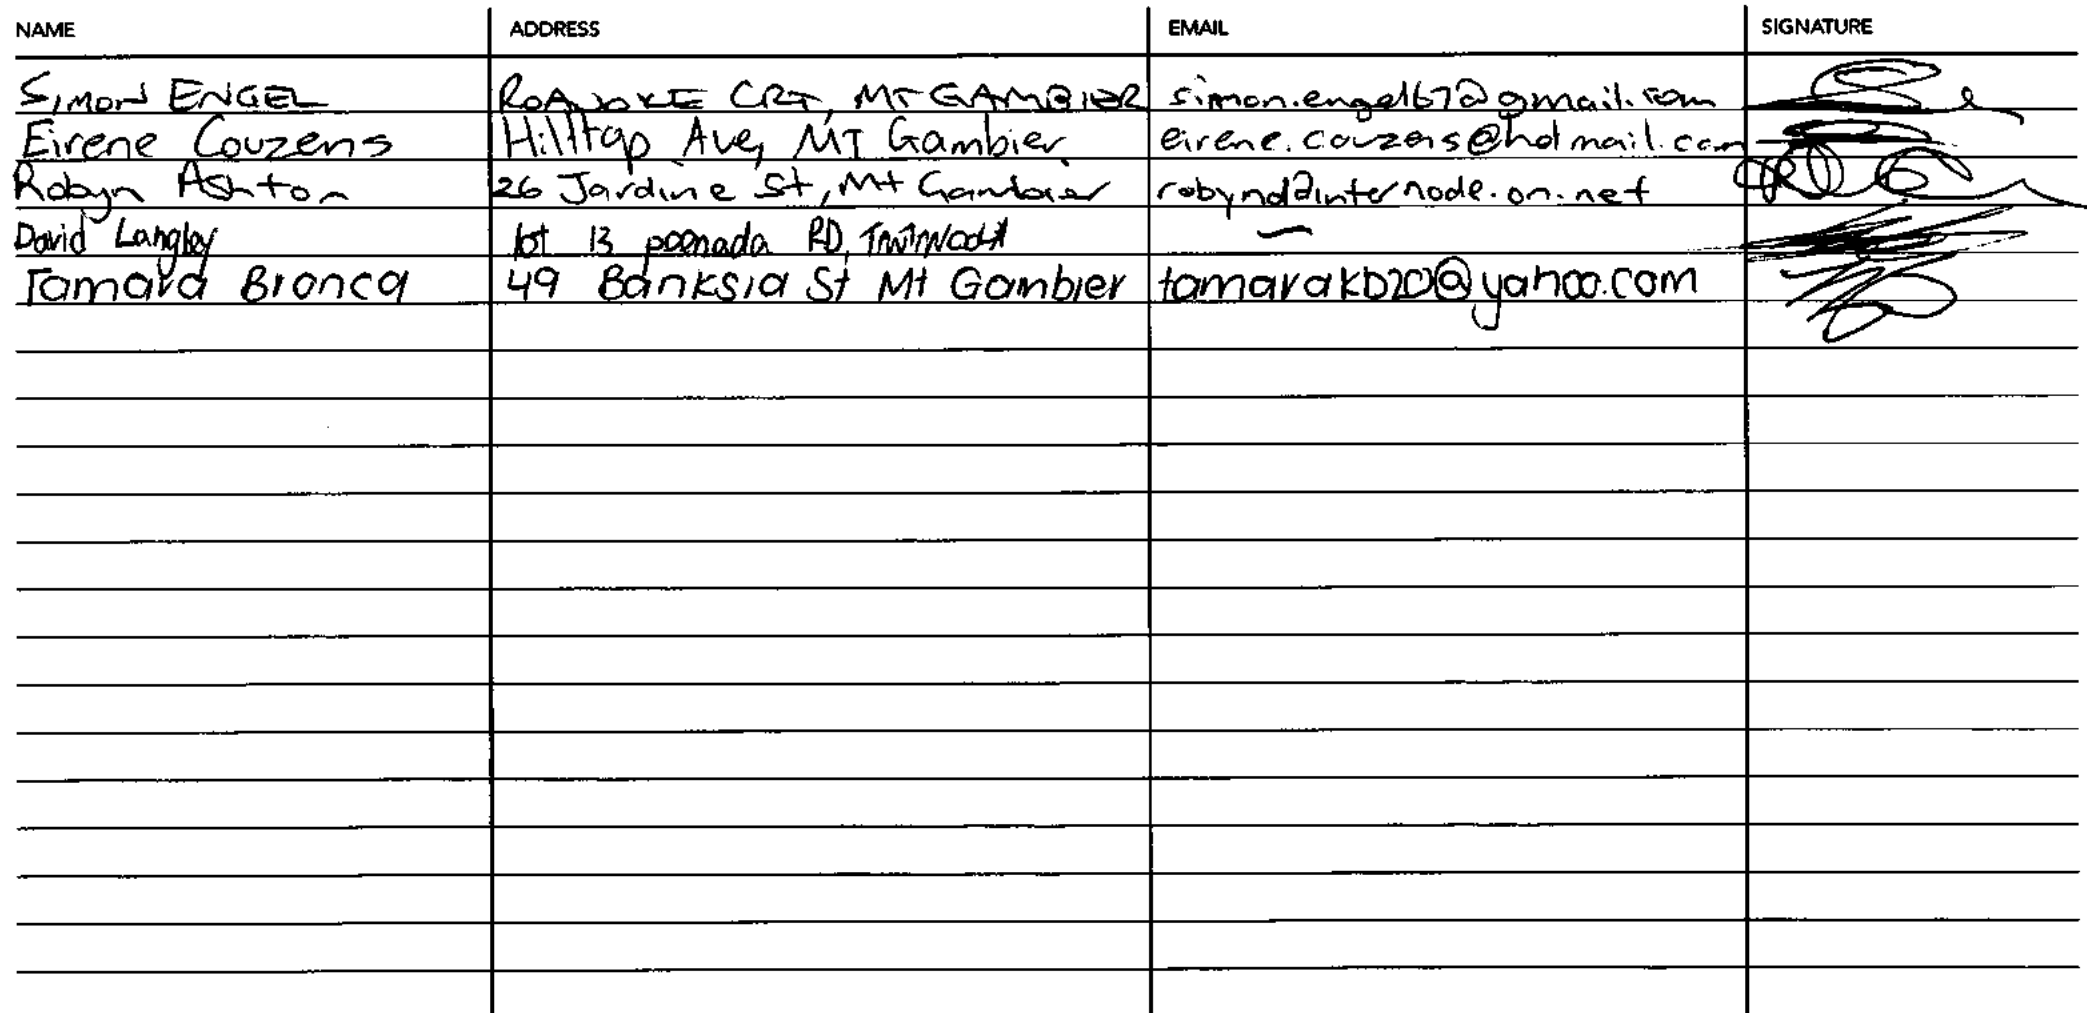 NAME ADDRESS EMAIL SIGNATURE
Simon ENGEL ROANOKE CRT, MT GAMBIER simon.engel67@gmail.com
Eirene Couzens Hilltop Ave, MT Gambier eirene.couzens@hotmail.com
Robyn Ashton 26 Jardine St, Mt Gambier robynd@internode.on.net
David Langley lot 13 poonada RD, —
Tamara Bronca 49 Banksia St Mt Gambier tamarakb20@yahoo.com